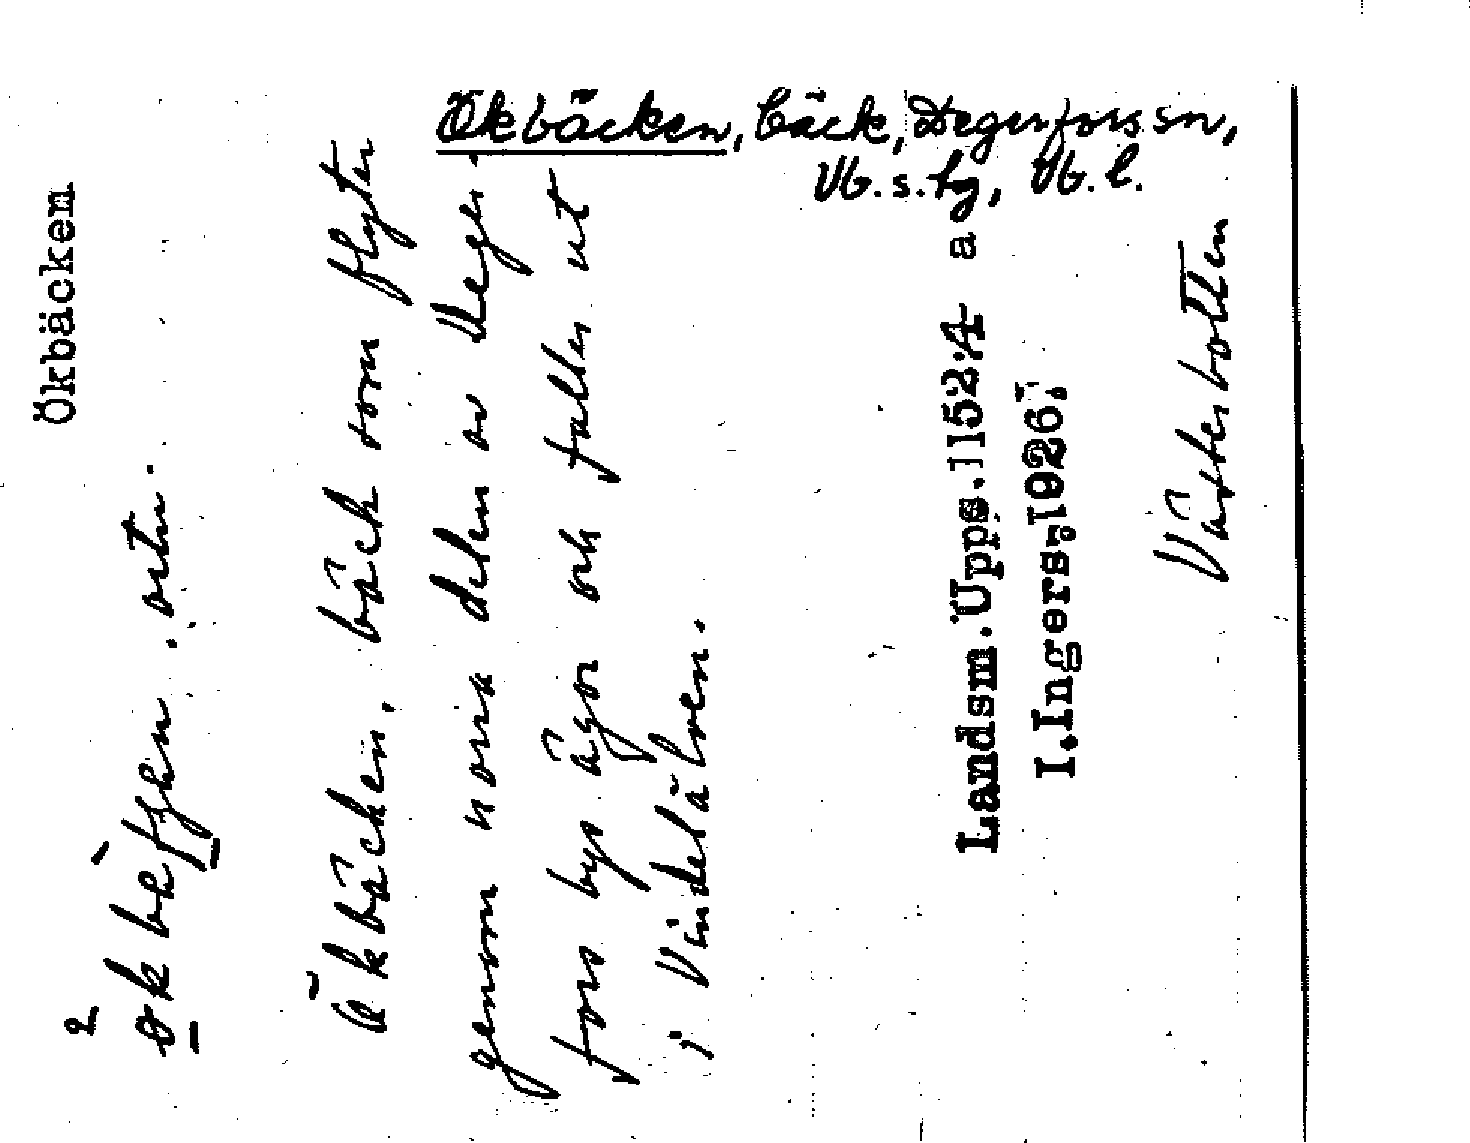 Ökbäcken, bäck, Degerfors sn,
Vb. s. lg, Vb. l.
Ökbäcken
ortn.
Ökbäcken, bäck som flyter
genom norra delen av Deger-
fors bys ägor och faller ut
i Vindelälven.
Landsm.Upps.1152:4 a
I.Ingers,1926,
Västerbotten